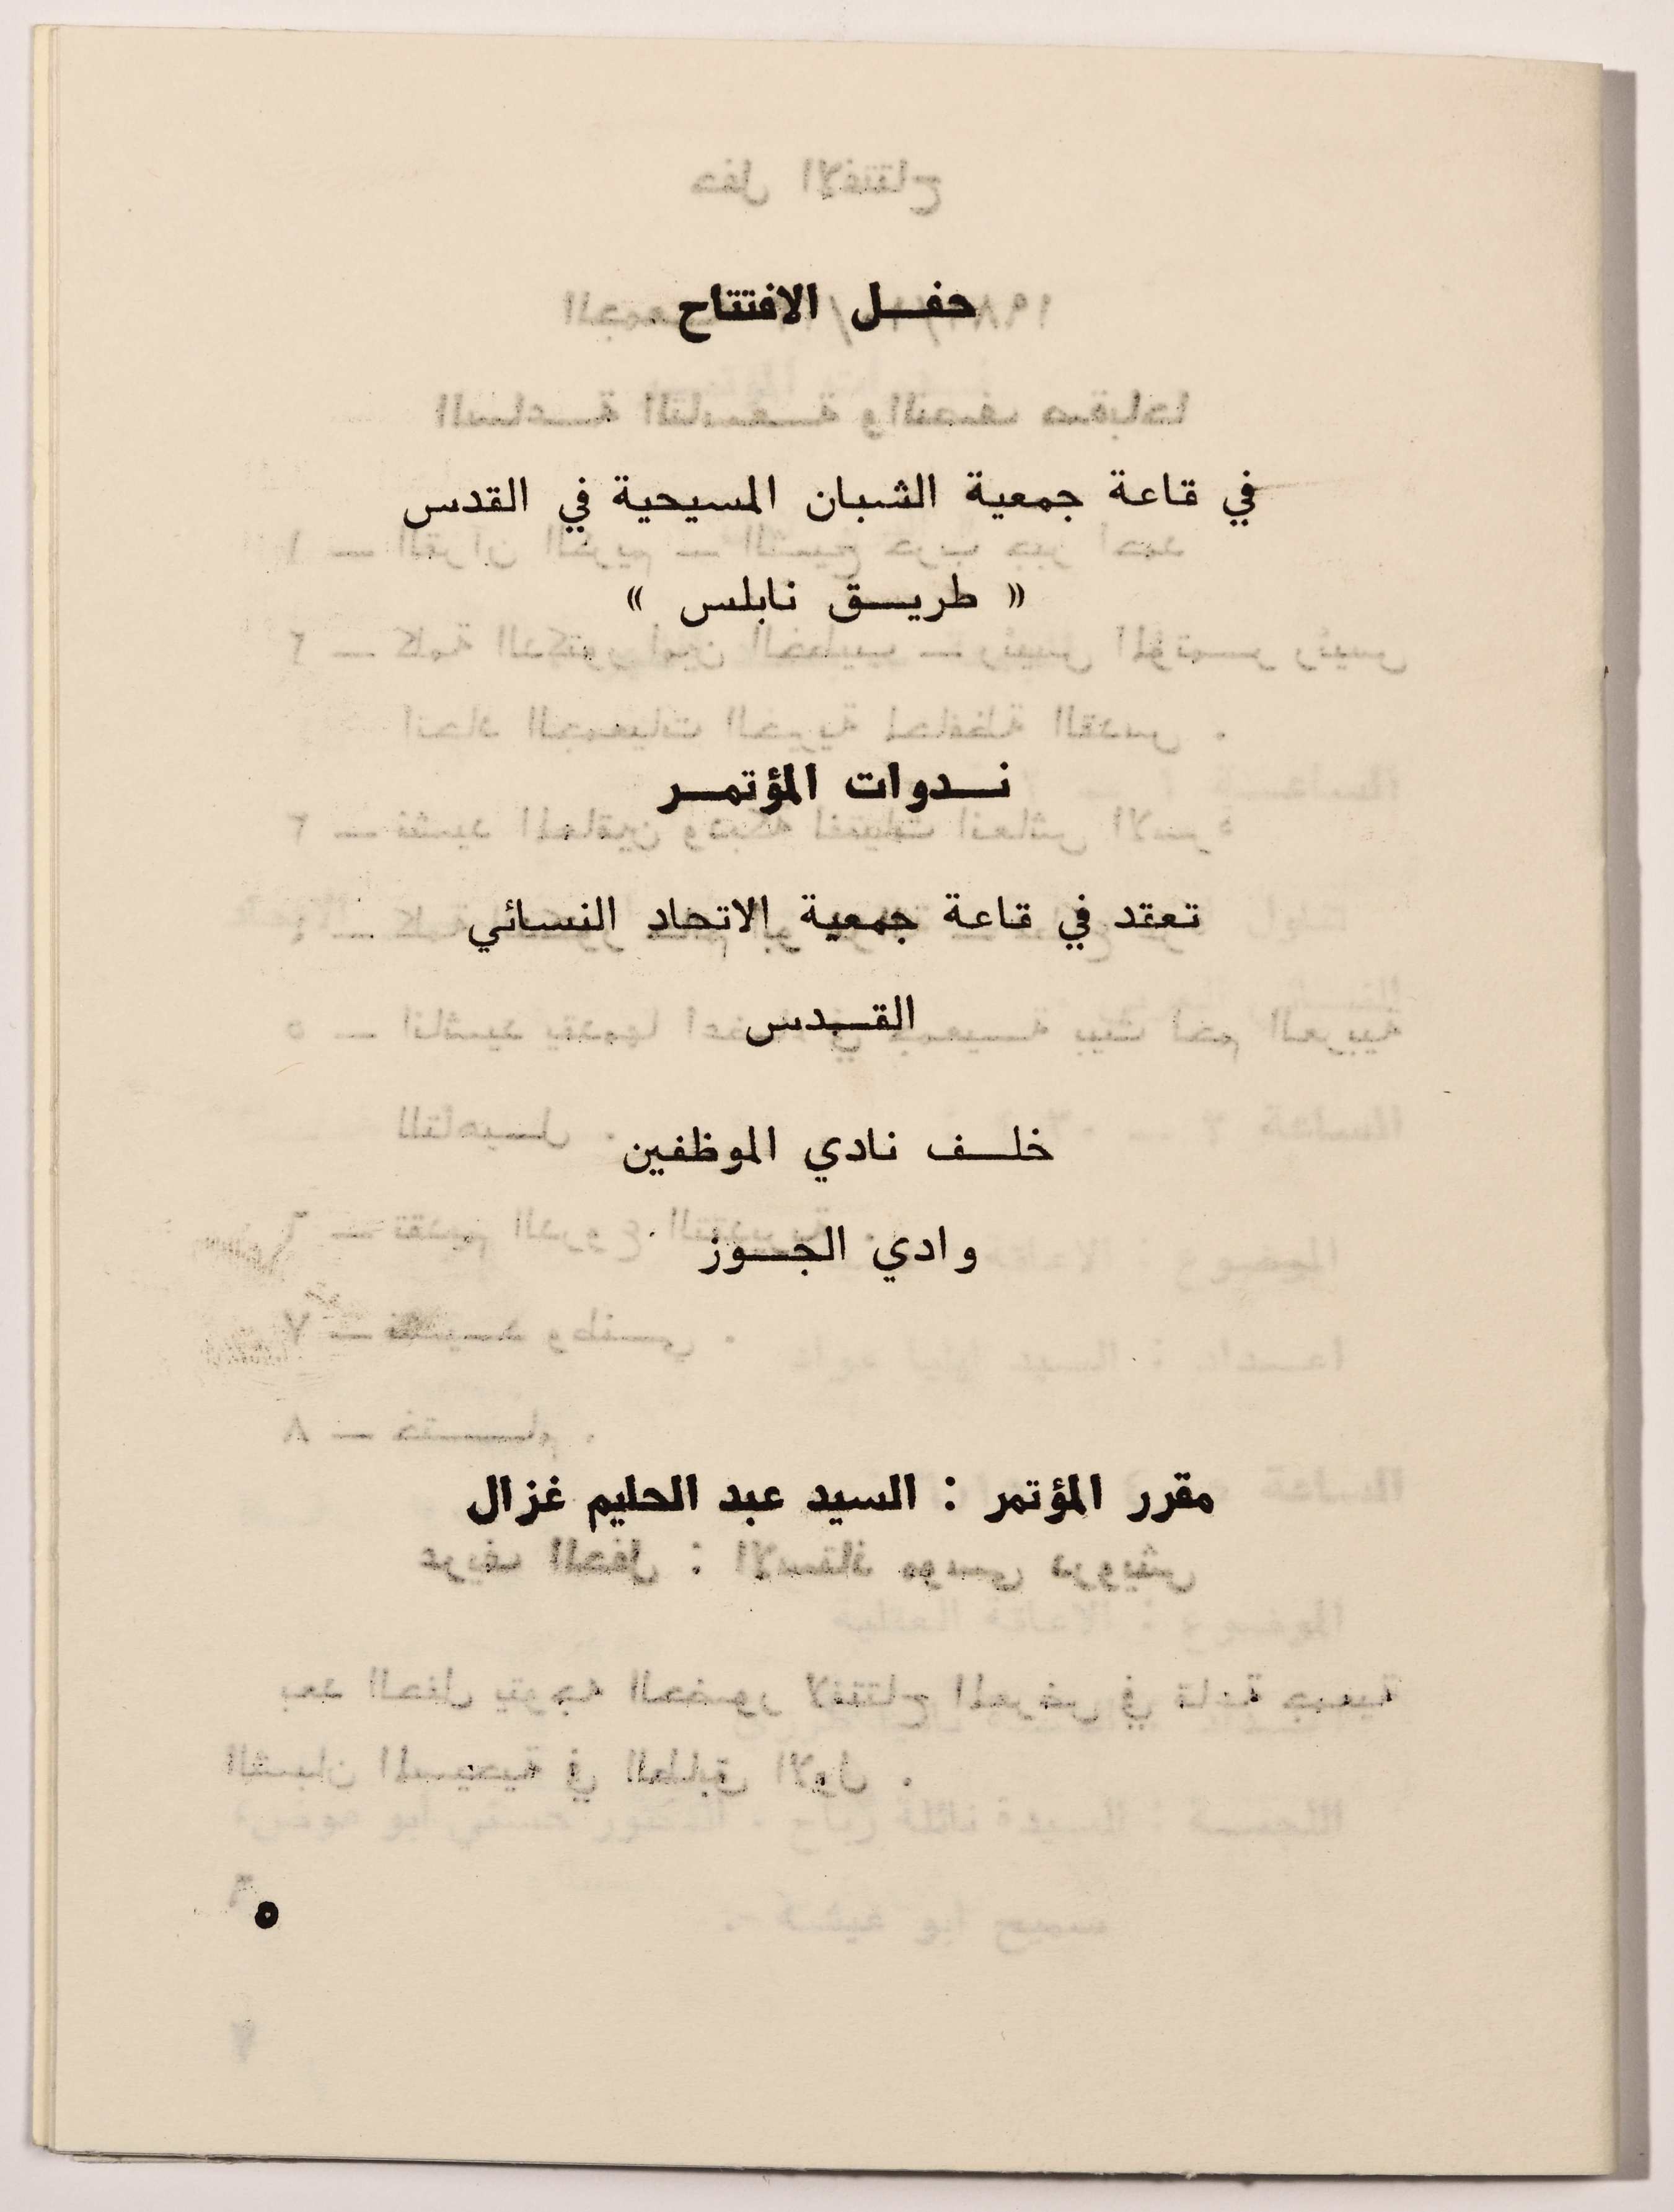 حفل الافتتاح
في قاعة جمعية الشبان المسيحية في القدس
« طريق نابلس »
ندوات المؤتمر
تعقد في قاعة جمعية الاتحاد النسائي
القدس
خلف نادي الموظفين
وادي الجوز
مقرر المؤتمر : السيد عبد الحليم غزال
٥